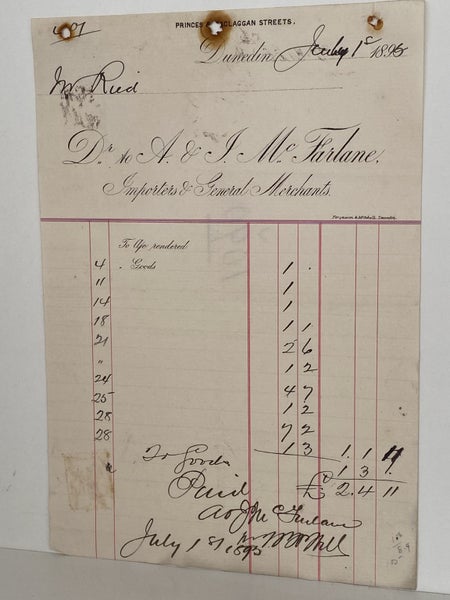 PRINCES & MACLAGGAN STREETS.
Dunedin July 1st 1895
Mr Ried
Dr. to A. & J. McFarlane,
Importers & General Merchants.
Fergusson & Mitchell, Dunedin
To a/c rendered
4 „ Goods 1 .
11 1
14 1
18 1 1
21 2 6
" 1 2
24 4 7
25 1 2
28 7 2
28 1 3 1. 1 11
To Goods 1 3 1.
Paid £ 2. 4 11
A & J McFarlane
July 1st 1895